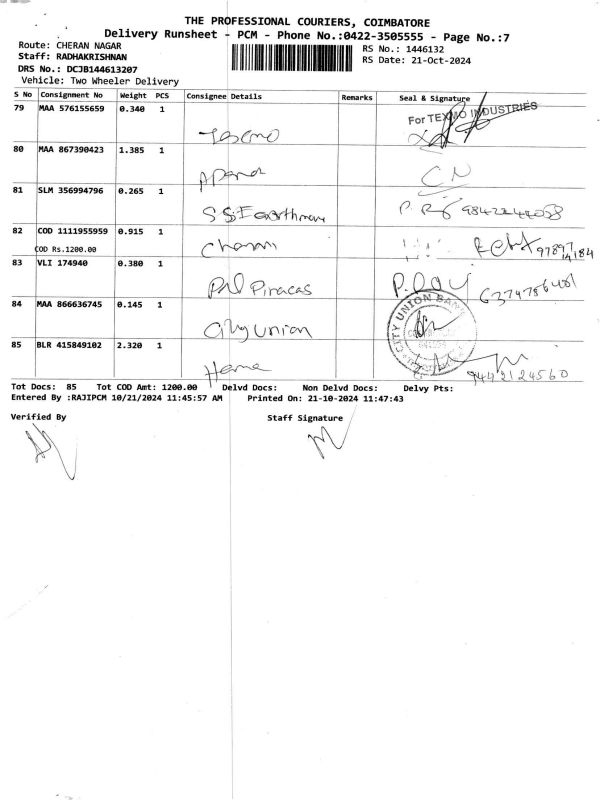 THE PROFESSIONAL COURIERS, COIMBATORE
Delivery Runsheet - PCM - Phone No.:0422-3505555 - Page No.:7
Route: CHERAN NAGAR
RS No.: 1446132
Staff: RADHAKRISHNAN
RS Date: 21-Oct-2024
DRS No.: DCJB144613207
Vehicle: Two Wheeler Delivery
S No Consignment No Weight PCS Consignee Details Remarks Seal & Signature
79 MAA 576155659 0.340 1
For TEXMO INDUSTRIES
80 MAA 867390423 1.385 1
CN
81 SLM 356994796 0.265 1
82 COD 1111955959 0.915 1
COD Rs.1200.00
83 VLI 174940 0.380 1
Piracas
84 MAA 866636745 0.145 1
City Union
CITY UNION BANK
85 BLR 415849102 2.320 1
Hema
9442124560
Tot Docs: 85 Tot COD Amt: 1200.00 Delvd Docs: Non Delvd Docs: Delvy Pts:
Entered By :RAJIPCM 10/21/2024 11:45:57 AM Printed On: 21-10-2024 11:47:43
Verified By Staff Signature